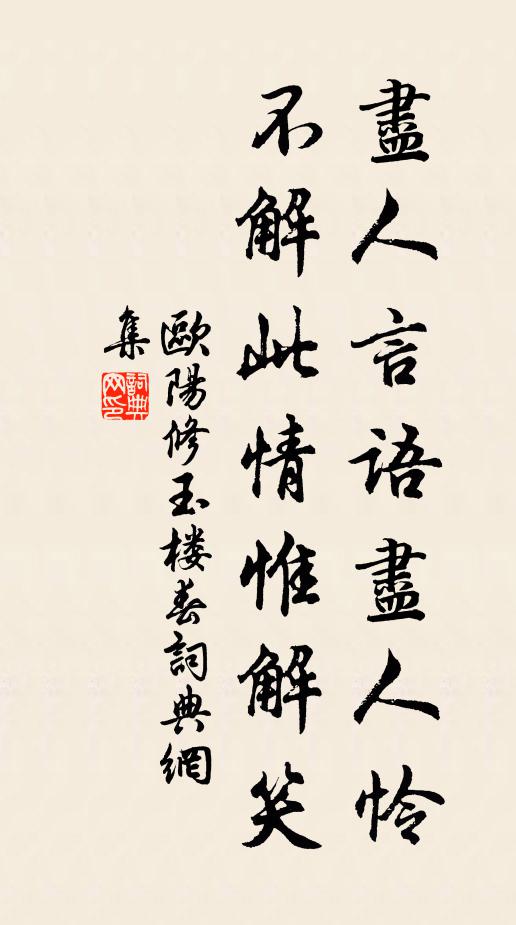 盡人言語盡人怜
不解此情惟解笑
歐陽修玉楼春詞典網
集
詞典
网印